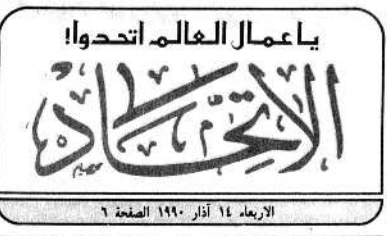 يا عمال العالم اتحدوا!
الاتحاد
الاربعاء ١٤ آذار ١٩٩٠ الصفحة ٦